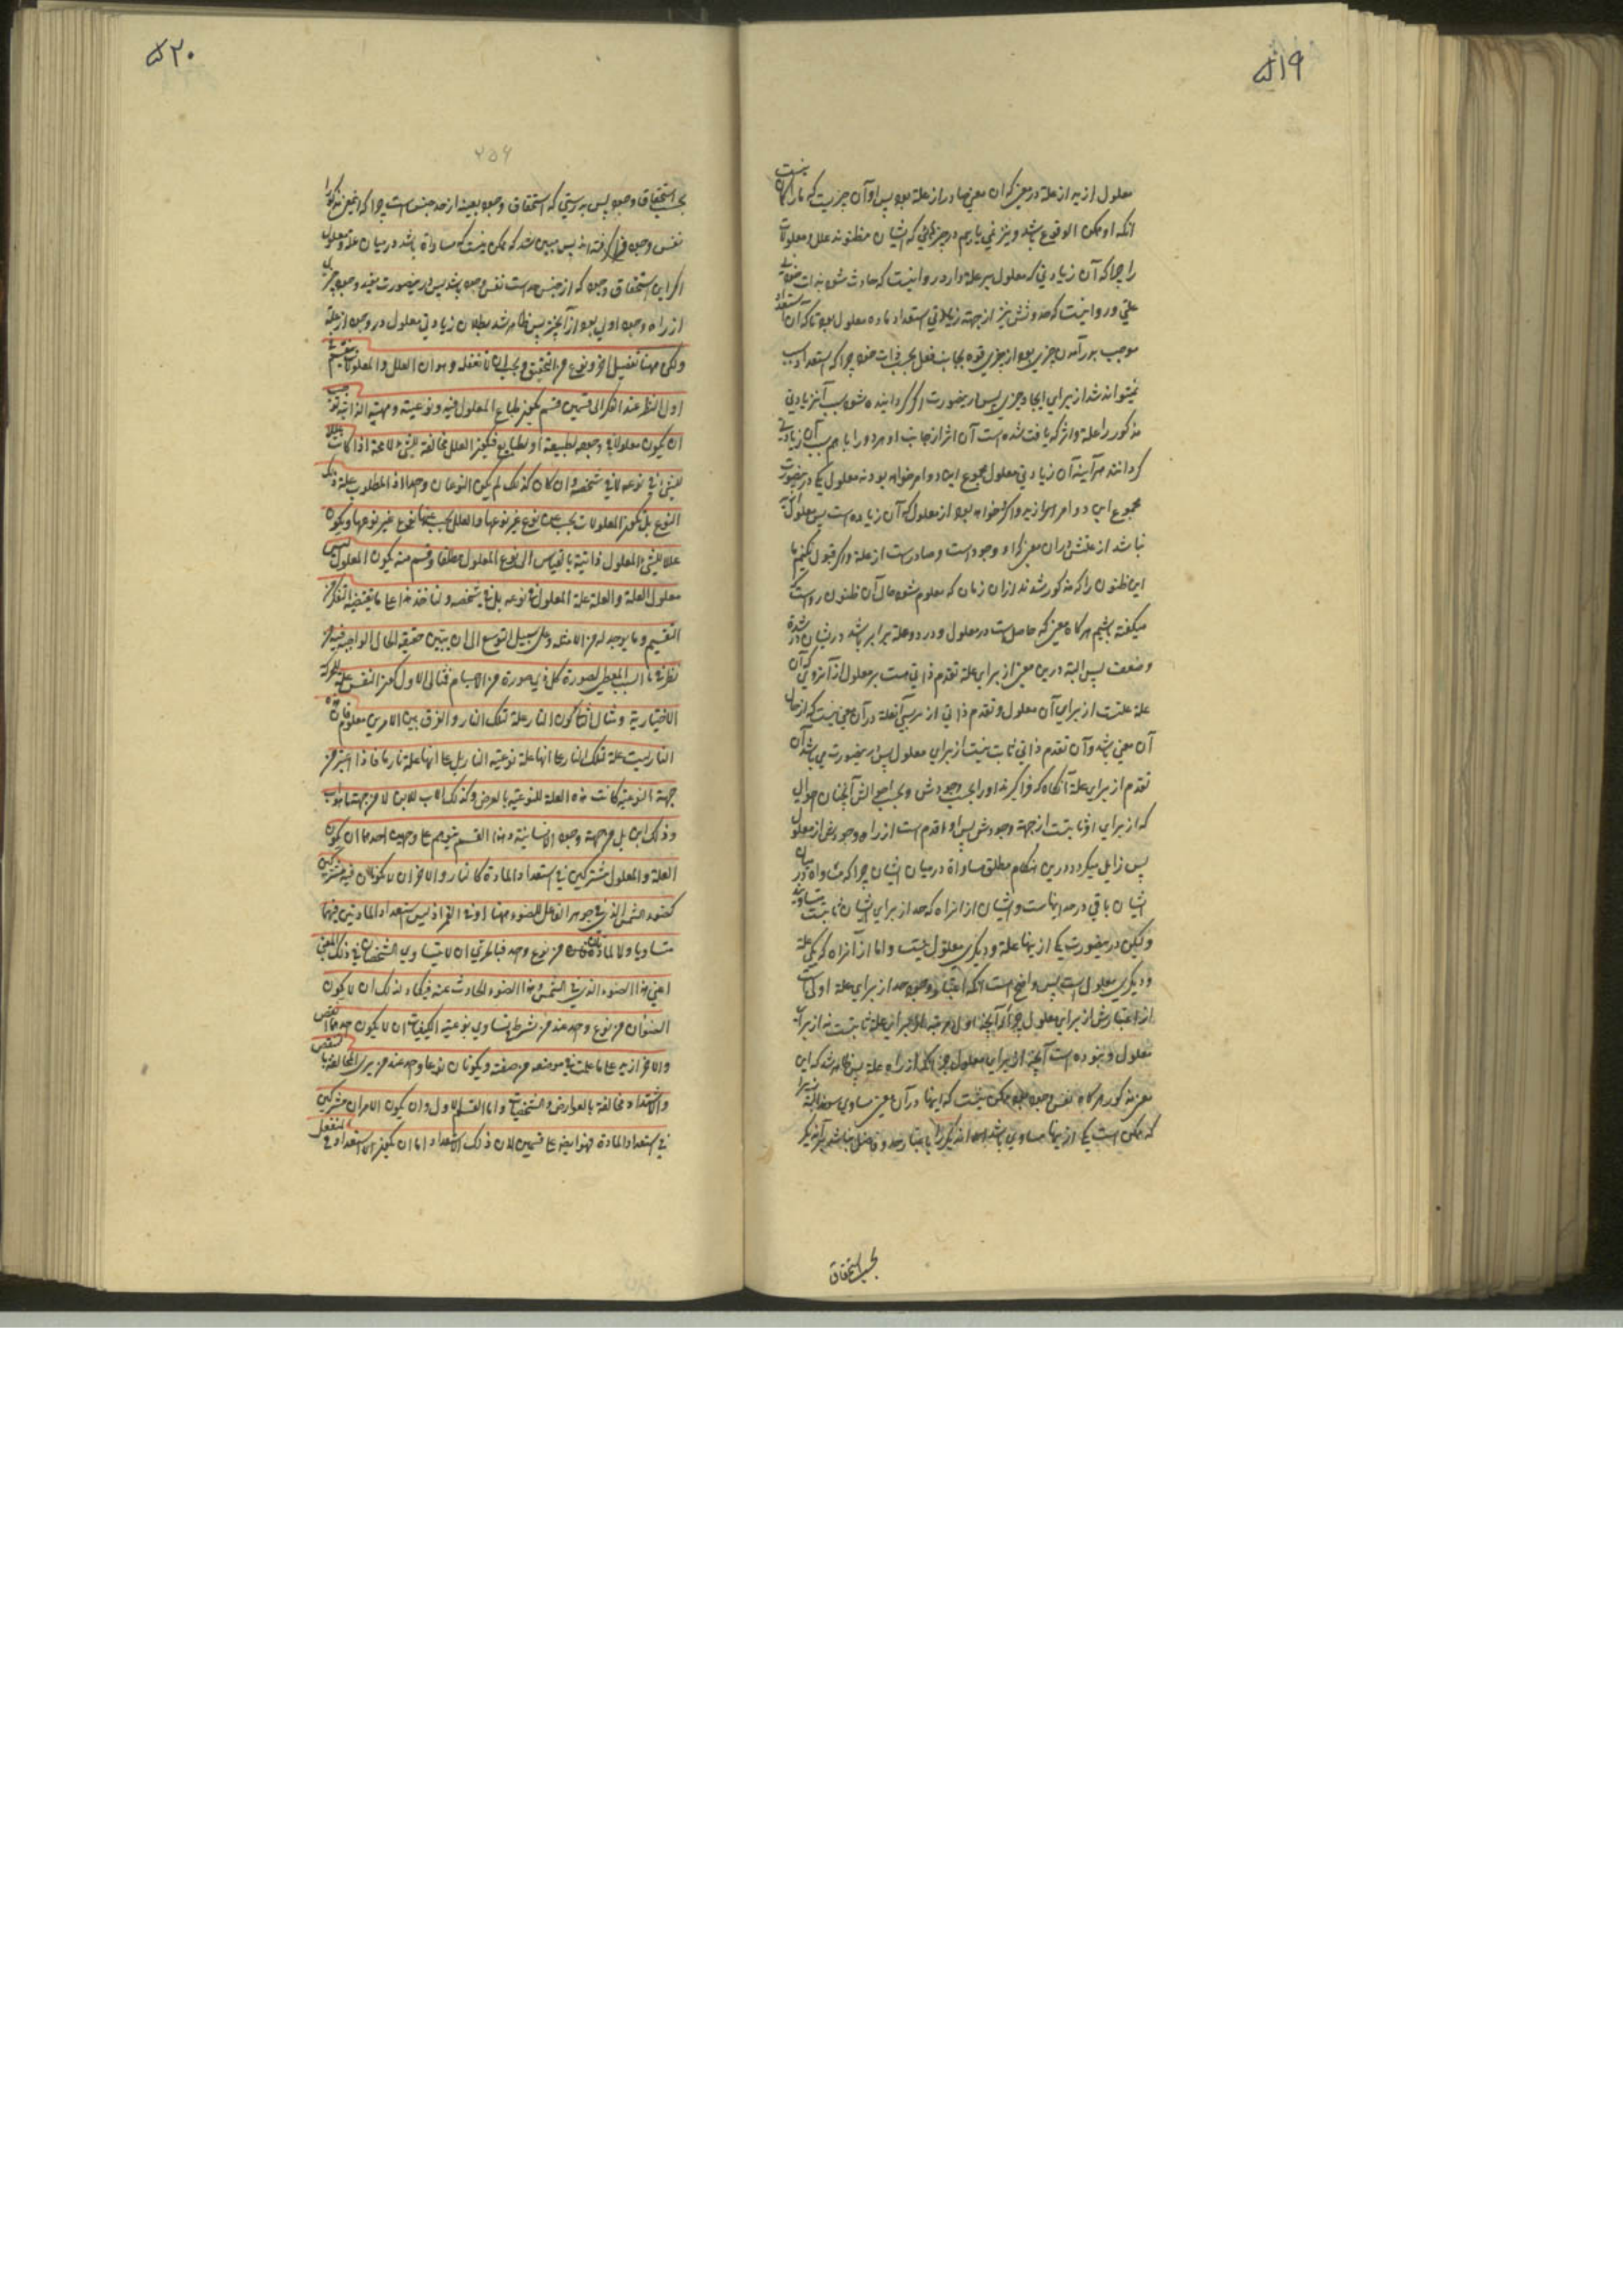 ۵۱۹
معلول ازید از علة در معنی که ان معنی صادر از علة بود پس او آن چیزیست که ما را کان نیست
انکه او ممکن الوقوع باشد و نیز نمی یابیم در چیزهائی که ایشان مظنونند علل و معلولات
را چرا که آن زیادتی که معلول بر علة دارد روا نیست که حادث شود بذات خود بی
علتی و روا نیست که حدوثش نیز از جهة زیادتی استعداد ماده معلول بود تا که آن استعداد
موجب برآمدن چیزی بود از چیزی قوه بجانب فعل بحسب ذات خود چرا که استعداد سبب
نمیتواند شد از برای ایجاد چیزی پس در اینصورت اگر گردانیده شود سبب آنرا زیادتی
مذکور را علة و اثر که یافت شده است آن اثر از جانب او هر دو را با هم سبب آن زیادتی
گردانند هر آینه آن زیادتی معلول مجموع این دو امر خواهد بود نه معلول یکی در اینصورت
مجموع این دو امر ازید و اکثر خواهد بود از معلول که آن زیاده است پس معلول
نباشد از علتش در ان معنی که او وجود است و صادرست از علة و اگر قبول کنیم ما
این ظنون را که مذکور شدند از ان زمان که معلوم شود حال آن ظنون رواست که
میگفته باشیم هرگاه معنی که حاصل است در معلول و در دو علة برابر باشد در ایشان در شدة
و ضعف پس البته درین معنی از برای علة تقدم ذاتی هست بر معلول از آنروی که آن
علة علتست از برای آن معلول و تقدم ذاتی از مر آن علة در آن معنی نیست که از حال
آن معنی باشد و آن تقدم ذاتی ثابت نیست از برای معلول پس در اینصورت می باشد آن
تقدم از برای علة آنگاه که فرا گیرند او را بحسب وجودش و بحسب احوالش آنچنان احوالی
که از برای او ثابتست از جهة وجودش پس او اقدم است از راه وجودش از معلول
پس زایل میگردد درین هنگام مطلق مساواة در میان ایشان چرا که مساواة در میان
ایشان باقی در حد اینهاست و ایشان از انراه که حد از برای ایشان ثابتست متساویند
و لیکن در اینصورت یکی از اینها علة و دیگری معلول نیست و اما از آنراه که یکی علة
و دیگری معلول است پس واضح است انکه اعتبار وجود حد از برای علة اولی است
از اعتبارش از برای معلول
معلول و نبوده است آنچه از برای معلول جز آنکه از راه علة پس ظاهر شد که این
معنی مذکور هرگاه نفس وجود بود ممکن نیست که اینها در آن معنی مساوی بوند البته زیرا
که ممکن است یکی از اینها مساوی باشد
بحسب استحقاق
۵۲۰
۲۵۶
بحسب استحقاق وجود پس بدرستی که استحقاق وجود بعینه از حد جنس است چرا که این معنی مذکور را
نفس وجود فرا گرفته اند پس مبین شد که ممکن نیست که مساواة باشد در میان علة و معلول
اگر این استحقاق وجود که از جنس حد است نفس وجود باشد پس در اینصورت مفید وجود چیزی
از راه وجود اولی بود از آنچیز پس ظاهر شد بطلان زیادتی معلول در وجود از علة
ولکن ههنا تفصیل اخر و نوع من التحقیق و یجب ان لا نغفله وهو ان العلل والمعلولات تنقسم فی
اول النظر عند الفکر الی قسمین قسم یکون طباع المعلول فیه ونوعیته ومهیته الذاتیة توجب
ان یکون معلولا فی وجوده لطبیعة او لطبایع فیکون العلل مخالفة للشیء لا محة اذا کانت عللا
للشیء فی نوعه لا فی شخصه وان کان کذلک لم یکن النوعان واحدا اذ المطلوب علة ذلک
النوع بل تکون المعلولات تجب عن نوع غیر نوعها والعلل یجب عنها نوع غیر نوعها ویکون
عللا للشیء المعلول ذاتیة بالقیاس الی نوع المعلول مطلقا وقسم منه یکون المعلول لیس
معلول العلة والعلة علة المعلول فی نوعه بل فی شخصه ولناخذ هذا علی ما یقتضیه الفکر من
التقسیم وما یوجد له من الامثلة وعلی سبیل التوسع الی ان یتبین حقیقه الحال الواجب فیه من
نظرنا فی السبب المعطی لصورة کل ذی صورة من الاجسام فمثال الاول کون النفس علة للحرکة
الاختیاریة ومثال الثانی کون النار علة تلک النار والفرق بین الامرین معلوم فان هذه
النار لیست علة تلک النار علی انها علة نوعیة النار بل علی انها علة نار ما فاذا اعتبر من
جهة النوعیة کانت هذه العلة للنوعیة بالعرض وکذلک الاب للابن لا من جهة ما هو اب
وذلک ابن بل من جهة وجود الانسانیة وهذا القسم یتوهم علی وجهین احدهما ان یکون
العلة والمعلول مشترکین فی استعداد المادة کالنار والنار والاخر ان لا یکونا فیه مشترکین
کضوء الشمس الذی فی جوهر الفاعل للضوء ههنا او فی القمر اذ لیس استعداد المادتین فیهما
متساویا ولا المادتان من نوع واحد فبالحری ان لا یتساوی الشخصان فی ذلک المعنی
اعنی هذا الضوء الذی فی الشمس وهذا الضوء الحادث عنه فیکاد لذلک ان لا یکون
الضوءان من نوع واحد عند من یشرط تساوی نوعیة الکیفیات ان لا یکون احدهما انقص
والاخر ازید علی ما علمت فی موضعه من صفته ویکونان نوعا واحدا عند من یری المخالفة بالنقص
والاشتداد مخالفة بالعوارض والتشخصات واما القسم الاول وان یکون الامران مشترکین
فی استعداد المادة فهو ایضا علی قسمین لان ذلک الاستعداد اما ان یکون الاستعداد فی المنفعل